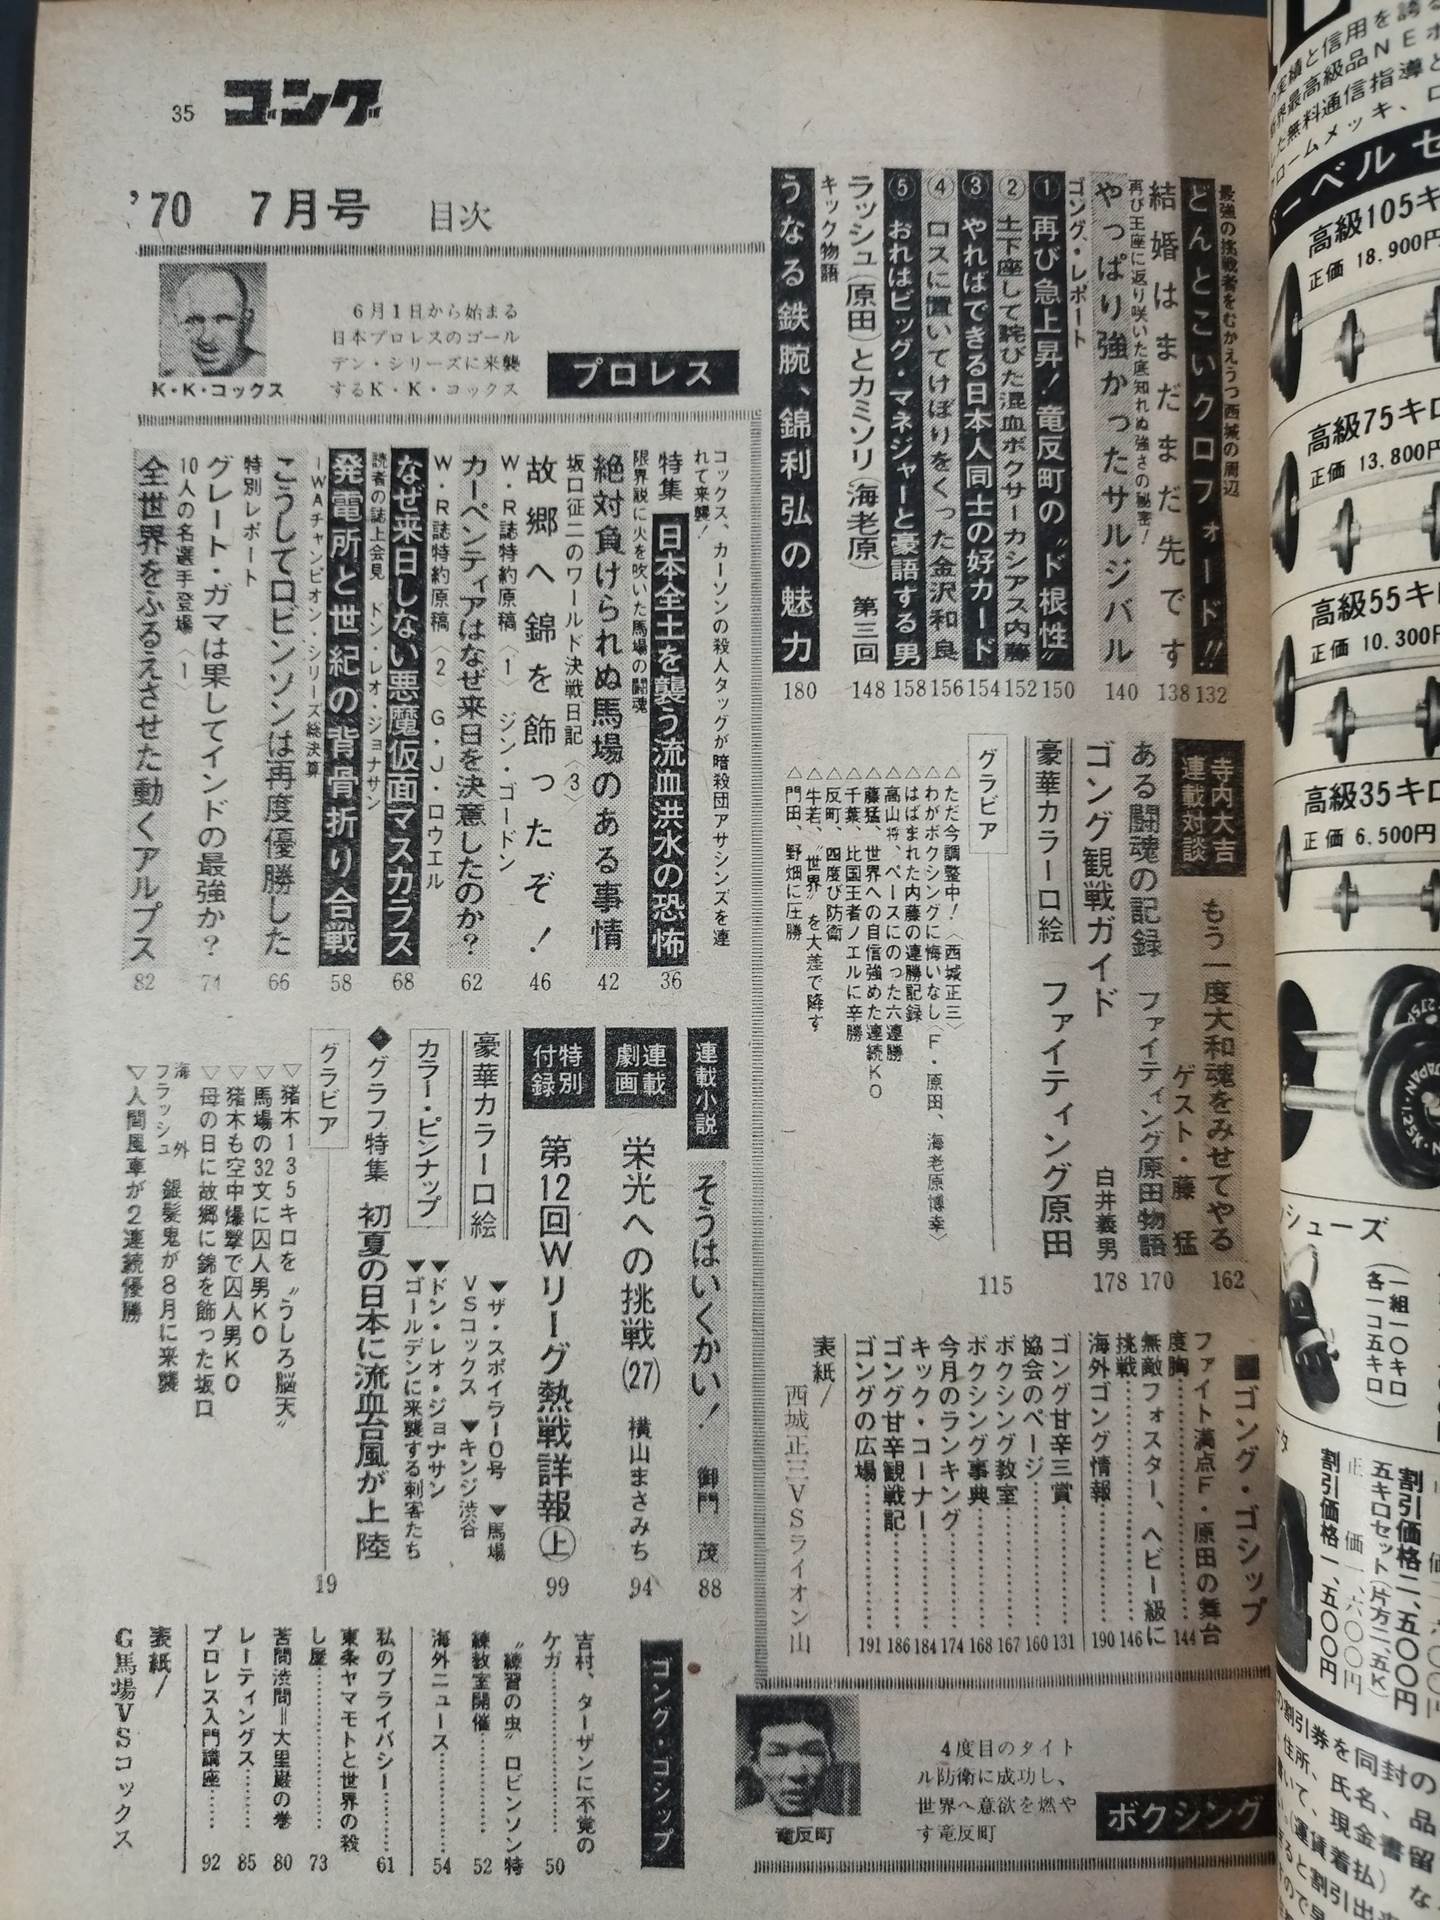 35
ゴング
'70 7月号 目次
K・K・コックス
6月1日から始まる
日本プロレスのゴール
デン・シリーズに来襲
するK・K・コックス
プロレス
コックス、カーソンの殺人タッグが暗殺団アサシンズを連
れて来襲!
特集 日本全土を襲う流血洪水の恐怖 36
限界説に火を吹いた馬場の闘魂
絶対負けられぬ馬場のある事情 42
坂口征二のワールド決戦日記〈3〉
故郷へ錦を飾ったぞ! 46
W・R誌特約原稿〈1〉 ジン・ゴードン
カーペンティアはなぜ来日を決意したのか? 62
W・R誌特約原稿〈2〉 G・J・ロウエル
なぜ来日しない悪魔仮面マスカラス 68
読者の誌上会見 ドン・レオ・ジョナサン
発電所と世紀の背骨折り合戦 58
IWAチャンピオン・シリーズ総決算
こうしてロビンソンは再度優勝した 66
特別レポート
グレート・ガマは果してインドの最強か? 74
10人の名選手登場〈1〉
全世界をふるえさせた動くアルプス 82
連載小説 そうはいくかい! 御門 茂 88
連載劇画 栄光への挑戦(27) 横山まさみち 94
特別付録 第12回Wリーグ熱戦詳報㊤ 99
豪華カラー口絵
▼ザ・スポイラー0号 ▼馬場
VSコックス ▼キンジ渋谷
カラー・ピンナップ
▼ドン・レオ・ジョナサン
▼ゴールデンに来襲する刺客たち
◆グラフ特集 初夏の日本に流血台風が上陸
グラビア 19
▽猪木135キロを〝うしろ脳天〟
▽馬場の32文に囚人男KO
▽猪木も空中爆撃で囚人男KO
▽母の日に故郷に錦を飾った坂口
海外フラッシュ 銀髪鬼が8月に来襲
▽人間風車が2連続優勝
ゴング・ゴシップ
吉村、ターザンに不覚の
ケガ………50
〝練習の虫〟ロビンソン特
練教室開催………52
海外ニュース………54
私のプライバシー………61
東条ヤマモトと世界の殺
し屋………73
苦問渋問=大里巌の巻 80
レーティングス………85
プロレス入門講座………92
表紙/
G馬場VSコックス
最強の挑戦者をむかえうつ西城の周辺
どんとこいクロフォード!! 132
結婚はまだまだ先です 138
再び王座に返り咲いた底知れぬ強さの秘密!
やっぱり強かったサルジバル 140
ゴング・レポート
①再び急上昇!竜反町の〝ド根性〟 150
②土下座して詫びた混血ボクサーカシアス内藤 152
③やればできる日本人同士の好カード 154
④ロスに置いてけぼりをくった金沢和良 156
⑤おれはビッグ・マネジャーと豪語する男 158
ラッシュ(原田)とカミソリ(海老原) 第三回 148
キック物語
うなる鉄腕、錦利弘の魅力 180
寺内大吉連載対談 もう一度大和魂をみせてやる
ゲスト・藤 猛 162
ある闘魂の記録 ファイティング原田物語 170
ゴング観戦ガイド 白井義男 178
豪華カラー口絵 ファイティング原田
グラビア 115
△ただ今調整中!〈西城正三〉
△わがボクシングに悔いなし〈F・原田、海老原博幸〉
△はばまれた内藤の連勝記録
△高山将、ペースにのった六連勝
△藤猛、世界への自信強めた連続KO
△千葉、比国王者ノエルに辛勝
△反町、四度び防衛
△牛若、〝世界〟を大差で降す
△門田、野畑に圧勝
■ゴング・ゴシップ
ファイト満点F・原田の舞台
度胸………144
無敵フォスター、ヘビー級に
挑戦………146
海外ゴング情報………190
ゴング甘辛三賞………131
協会のページ………160
ボクシング教室………167
ボクシング事典………168
今月のランキング………174
キック・コーナー………184
ゴング甘辛観戦記………186
ゴングの広場………191
表紙/
西城正三VSライオン山
竜反町
4度目のタイト
ル防衛に成功し、
世界へ意欲を燃や
す竜反町
ボクシング
高級105キ
正価 18.900円
高級75キロ
正価 13.800円
高級55キロ
正価 10.300円
高級35キロ
正価 6.500円
シューズ
(一組一〇キロ
各一コ五キロ)
割引価格二、五〇〇円
五キロセット(片方二、五K)
正 価一、六〇〇円
割引価格一、五〇〇円